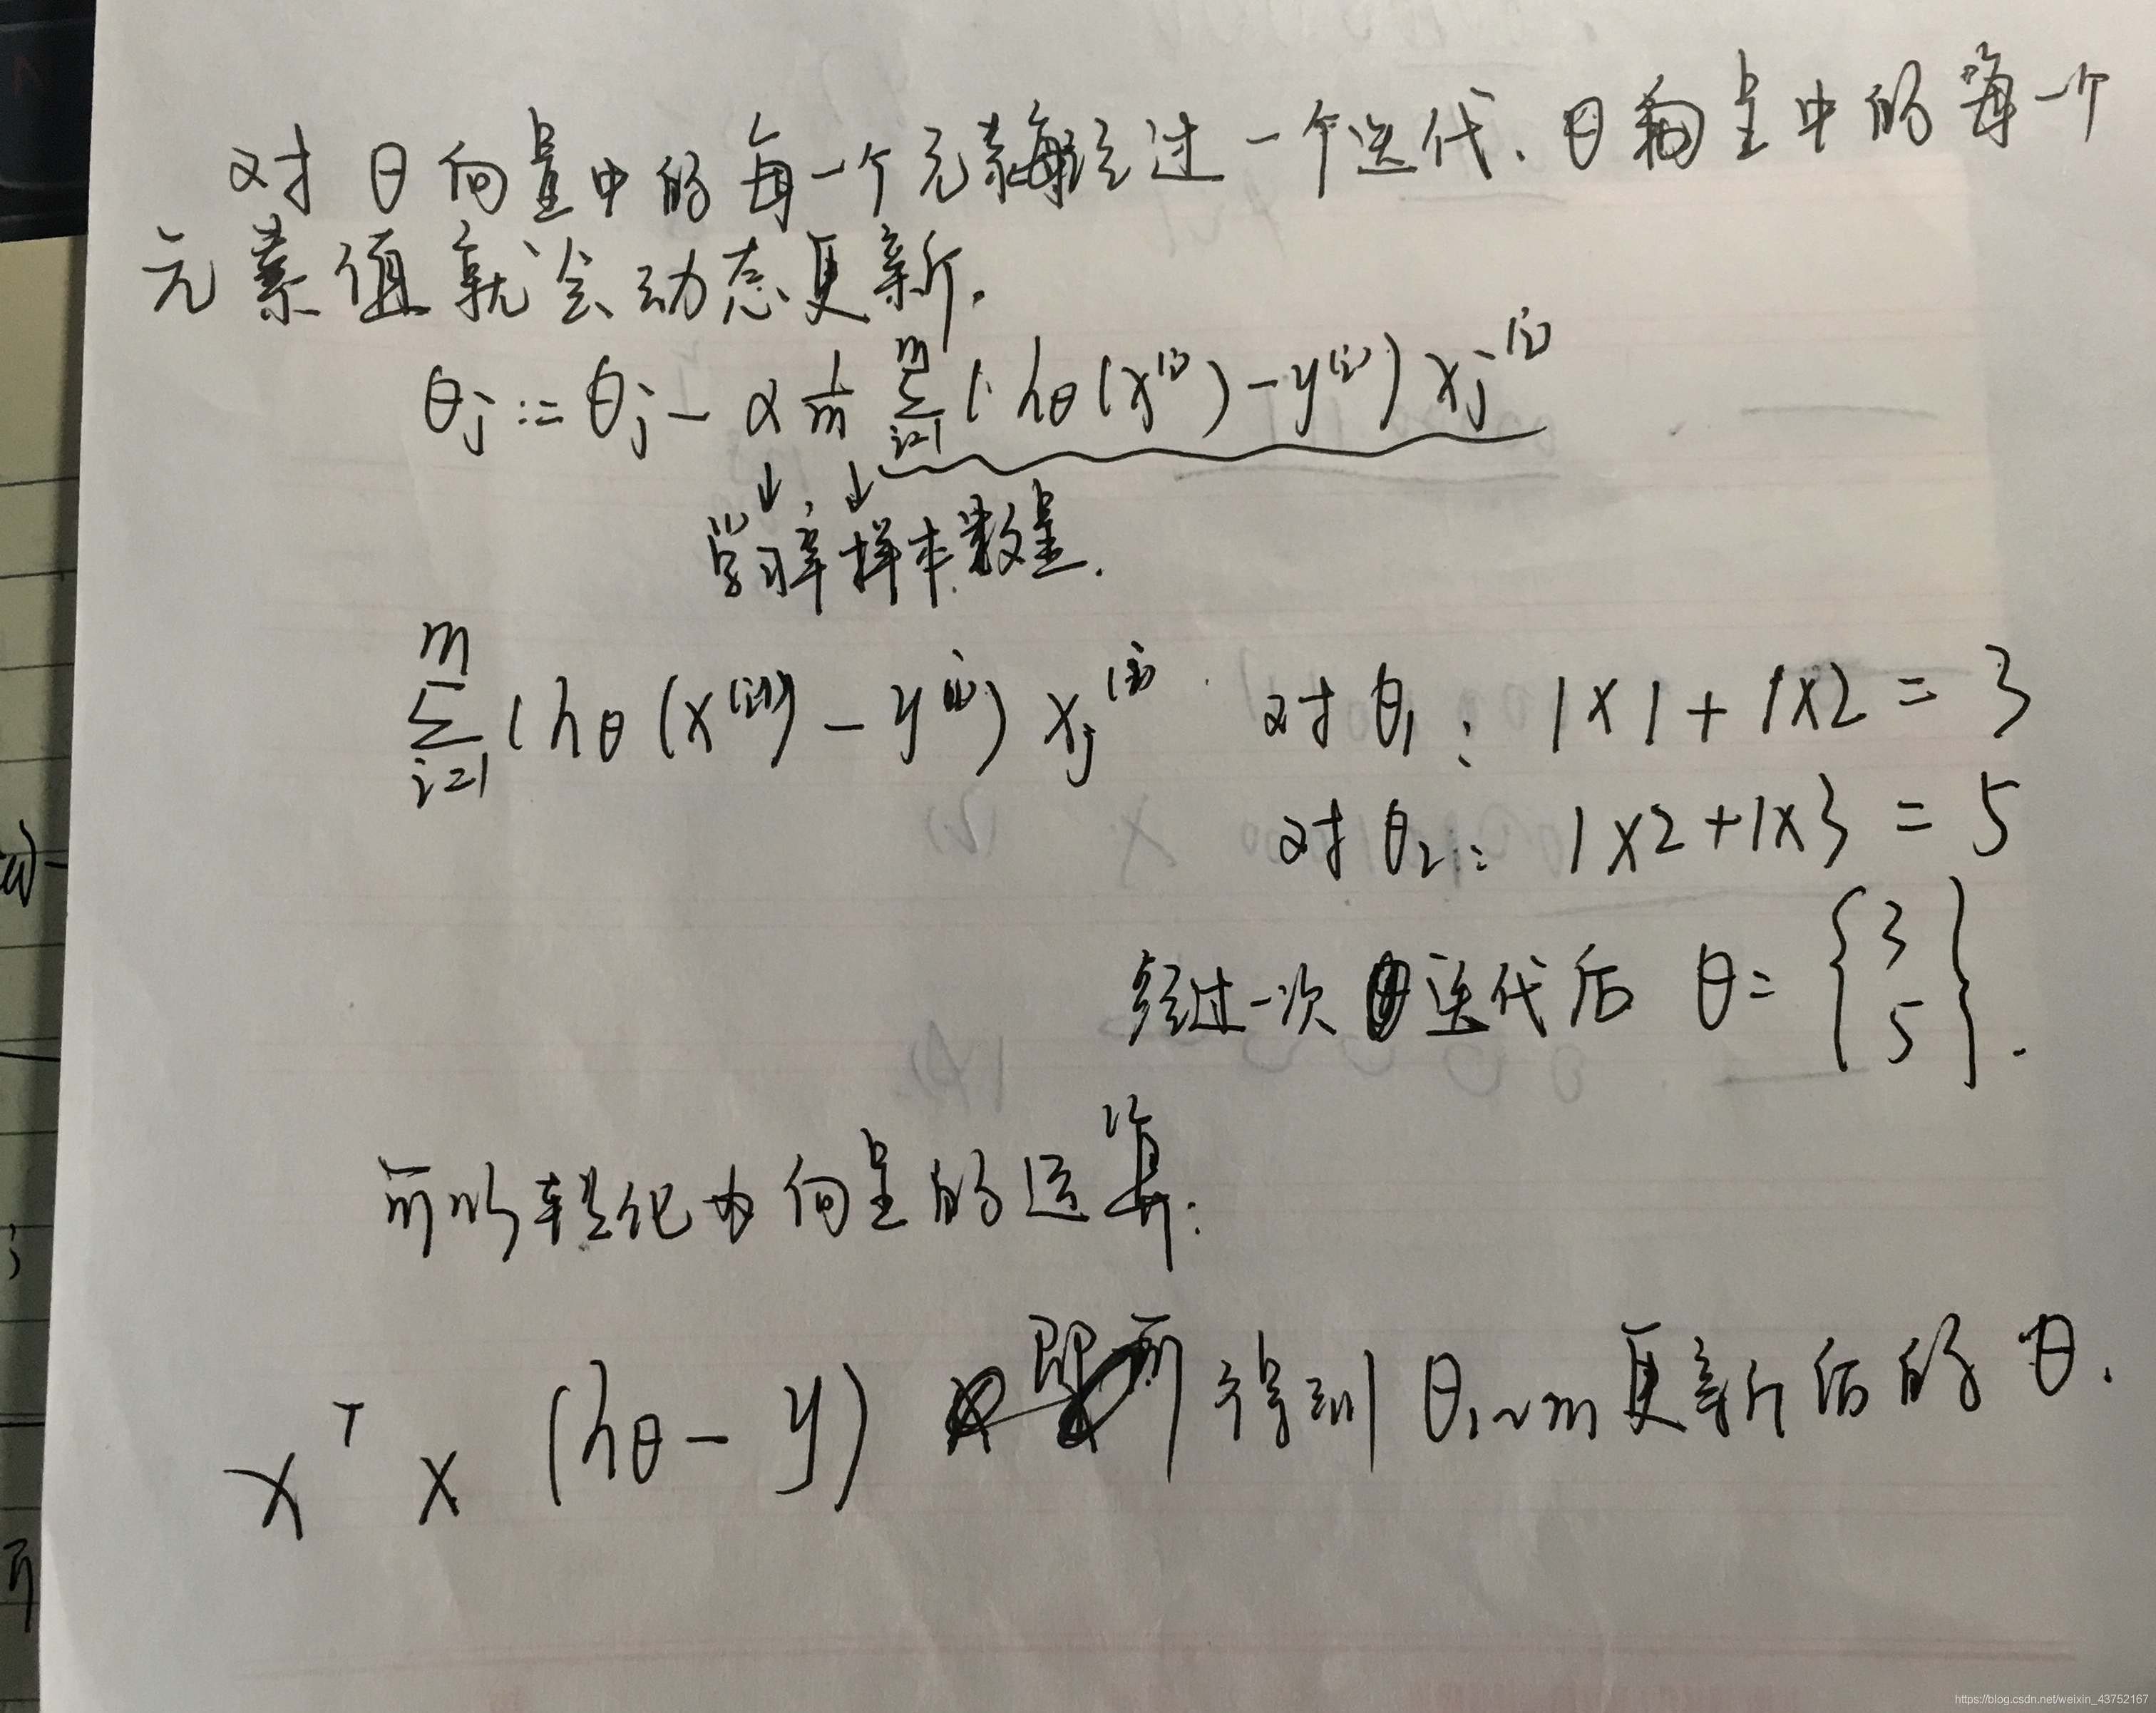 对θ向量中的每一个元素每经过一个迭代、θ向量中的每一个
元素值就会动态更新.
θj := θj - α 1/m Σ(i=1→m) (hθ(x⁽ⁱ⁾) - y⁽ⁱ⁾) xj⁽ⁱ⁾
↓ ↓
学习率 样本数量.
Σ(i=1→m) (hθ(x⁽ⁱ⁾) - y⁽ⁱ⁾) xj⁽ⁱ⁾ 对θ₁: 1×1+1×2 = 3
对θ₂: 1×2+1×3 = 5
经过一次迭代后 θ= { 3 5 } .
所以转化为向量的运算:
xᵀ × (hθ - y) 即可得到θ₁~m更新后的θ.
https://blog.csdn.net/weixin_43752167